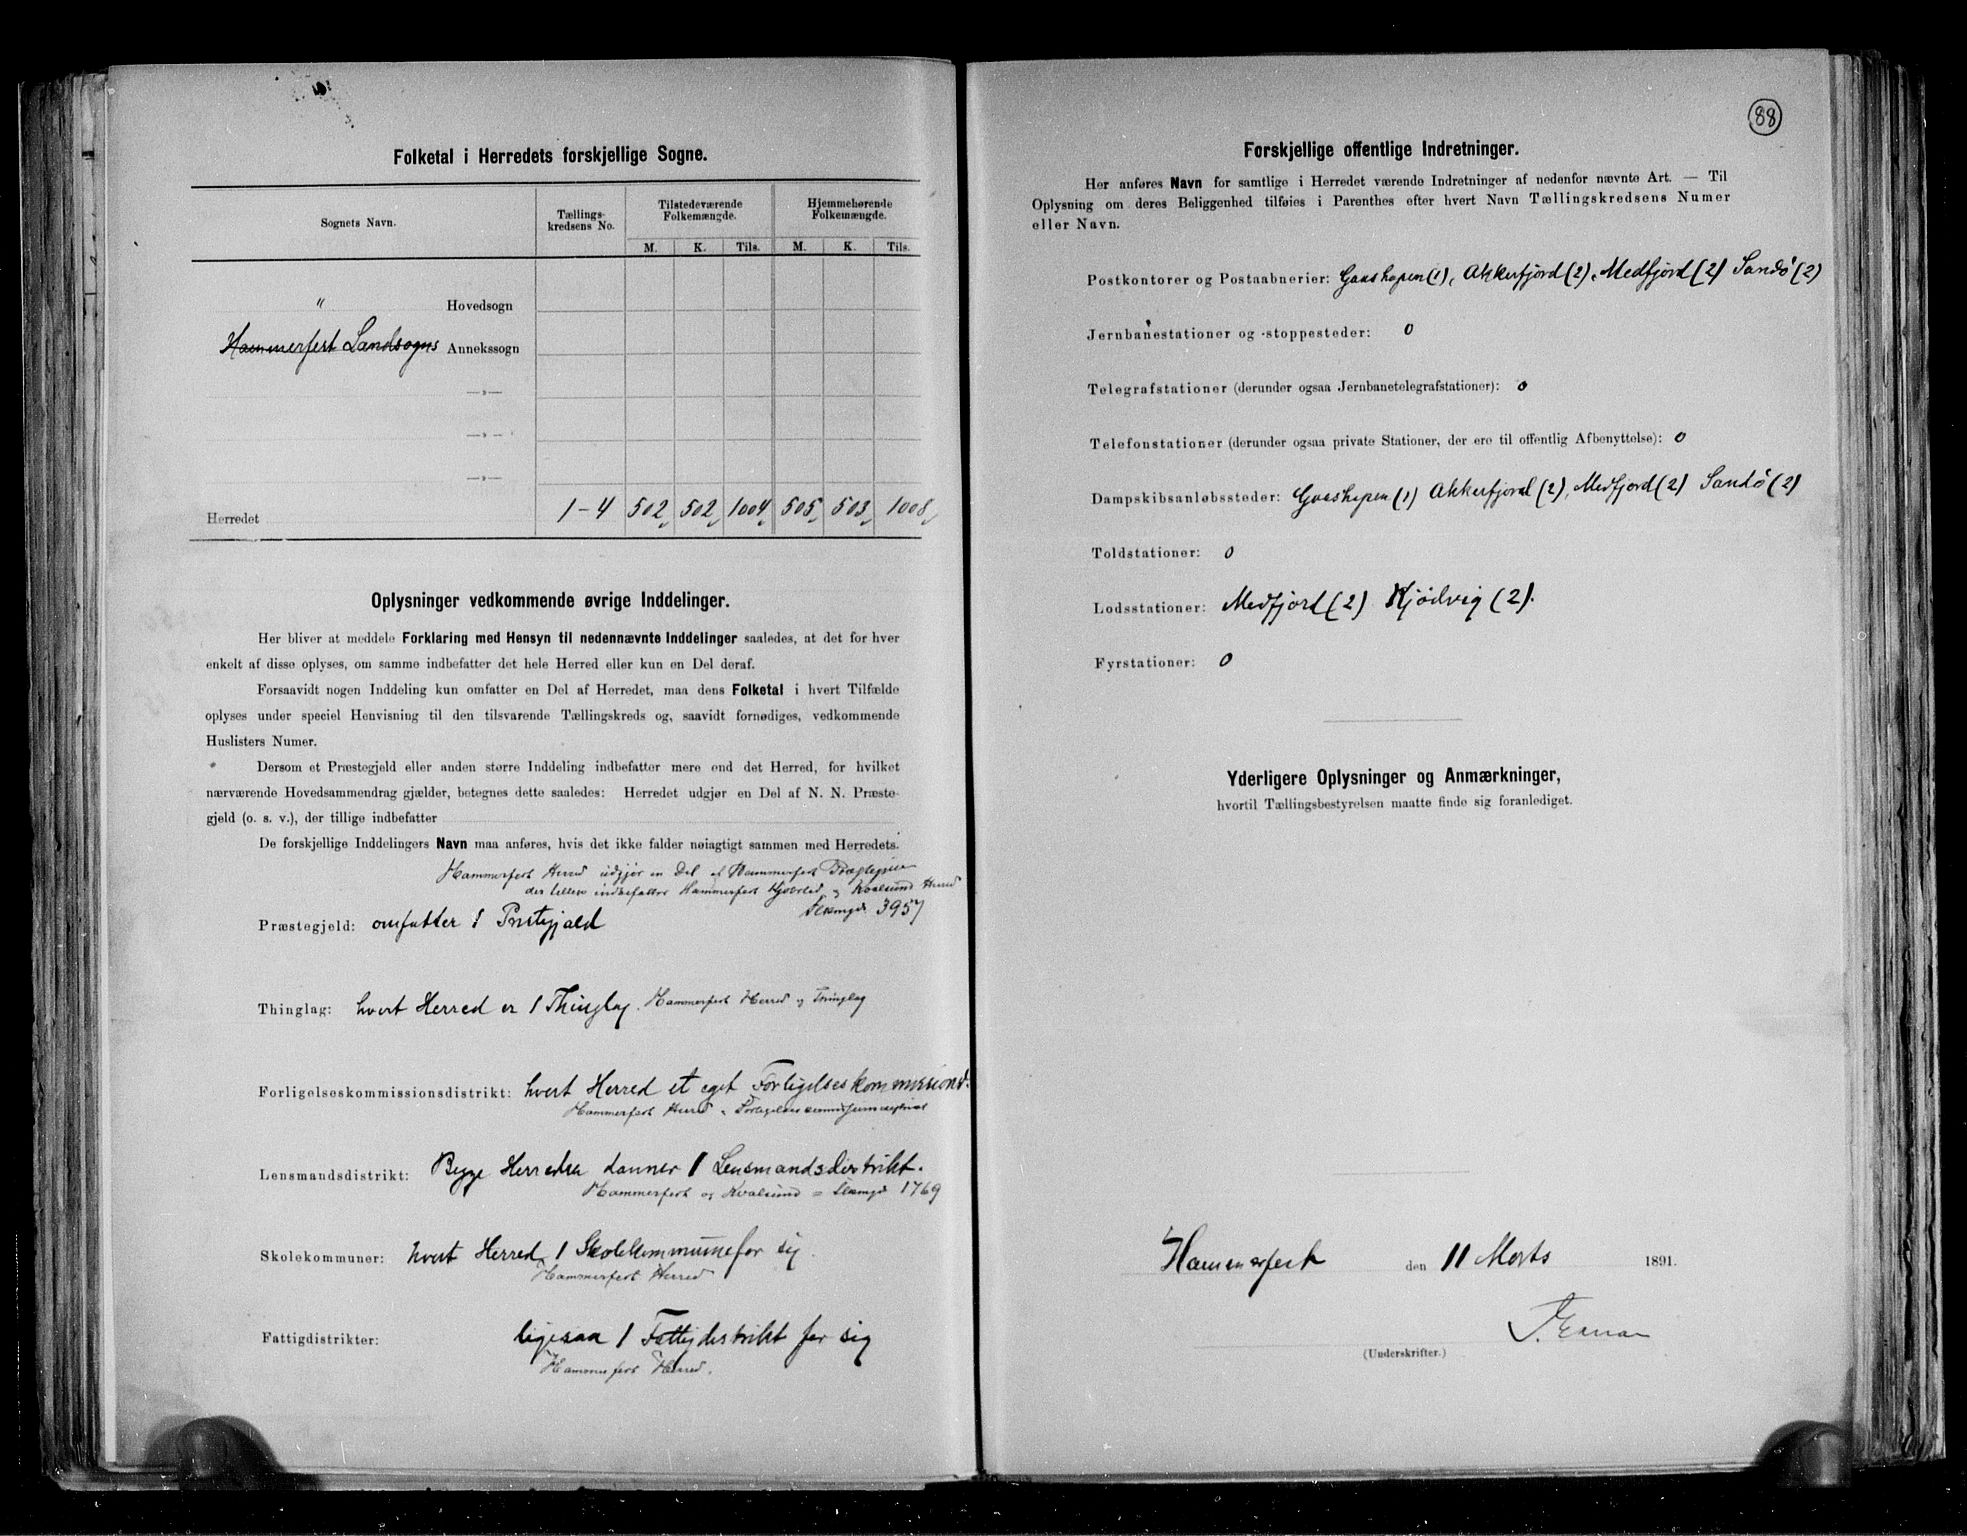 Folketal i Herredets forskjellige Sogne.
Sognets Navn.
Tællings-
kredsens No.
Tilstedeværende
Folkemængde.
Hjemmehørende
Folkemængde.
M. K. Tils. M. K. Tils.
" Hovedsogn
Hammerfest Landsogns Annekssogn
—„—
—„—
—„—
Herredet 1-4 502 502 1004 505 503 1008
Oplysninger vedkommende øvrige Inddelinger.
Her bliver at meddele Forklaring med Hensyn til nedennævnte Inddelinger saaledes, at det for hver
enkelt af disse oplyses, om samme indbefatter det hele Herred eller kun en Del deraf.
Forsaavidt nogen Inddeling kun omfatter en Del af Herredet, maa dens Folketal i hvert Tilfælde
oplyses under speciel Henvisning til den tilsvarende Tællingskreds og, saavidt fornødiges, vedkommende
Huslisters Numer.
Dersom et Præstegjeld eller anden større Inddeling indbefatter mere end det Herred, for hvilket
nærværende Hovedsammendrag gjælder, betegnes dette saaledes: Herredet udgjør en Del af N. N. Præste-
gjeld (o. s. v.), der tillige indbefatter
De forskjellige Inddelingers Navn maa anføres, hvis det ikke falder nøiagtigt sammen med Herredets.
Hammerfest Herred udgjør en Del af Hammerfest
der tillige indbefatter Hammerfest Kjøbsted og Kvalsund Herred
3957
Præstegjeld: omfatter 1 Prstegjald
Thinglag: hvert Herred er 1 Thinglag. Hammerfest Herred og Thinglag
Forligelseskommissionsdistrikt: hvert Herred et eget Forligelseskommissionsd.
Hammerfest Herred
Lensmandsdistrikt: Begge Herreder danner 1 Lensmandsdistrikt.
Hammerfest og Kvalsund = 1769
Skolekommuner: hvert Herred 1 Skolekommune for sig.
Hammerfest Herred
Fattigdistrikter: ligesaa 1 Fattigdistrikt for sig
Hammerfest Herred.
88
Forskjellige offentlige Indretninger.
Her anføres Navn for samtlige i Herredet værende Indretninger af nedenfor nævnte Art. — Til
Oplysning om deres Beliggenhed tilføies i Parenthes efter hvert Navn Tællingskredsens Numer
eller Navn.
Postkontorer og Postaabnerier: Gaashopen (1), Akkerfjord (2), Medfjord (2) Sandö (2)
Jernbanestationer og -stoppesteder: 0
Telegrafstationer (derunder ogsaa Jernbanetelegrafstationer): 0
Telefonstationer (derunder ogsaa private Stationer, der ere til offentlig Afbenyttelse): 0
Dampskibsanløbssteder: Gaashopen (1) Akkerfjord (2), Medfjord (2) Sandö (2)
Toldstationer: 0
Lodsstationer: Medfjord (2) Kjödvig (2).
Fyrstationer: 0
Yderligere Oplysninger og Anmærkninger,
hvortil Tællingsbestyrelsen maatte finde sig foranlediget.
Hammerfest den 11 Marts 1891.
(Underskrifter.)